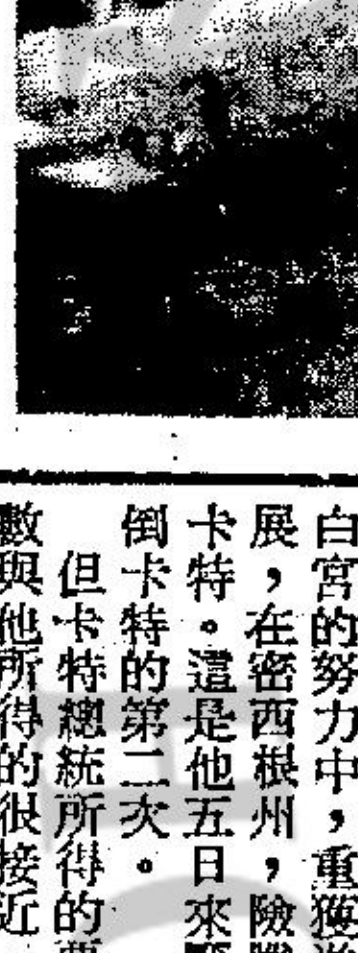 白宮的努力中，重獲
展，在密西根州，險勝
卡特。這是他五日來
倒卡特的第二次。
但卡特總統所得的票
數與他所得的很接近